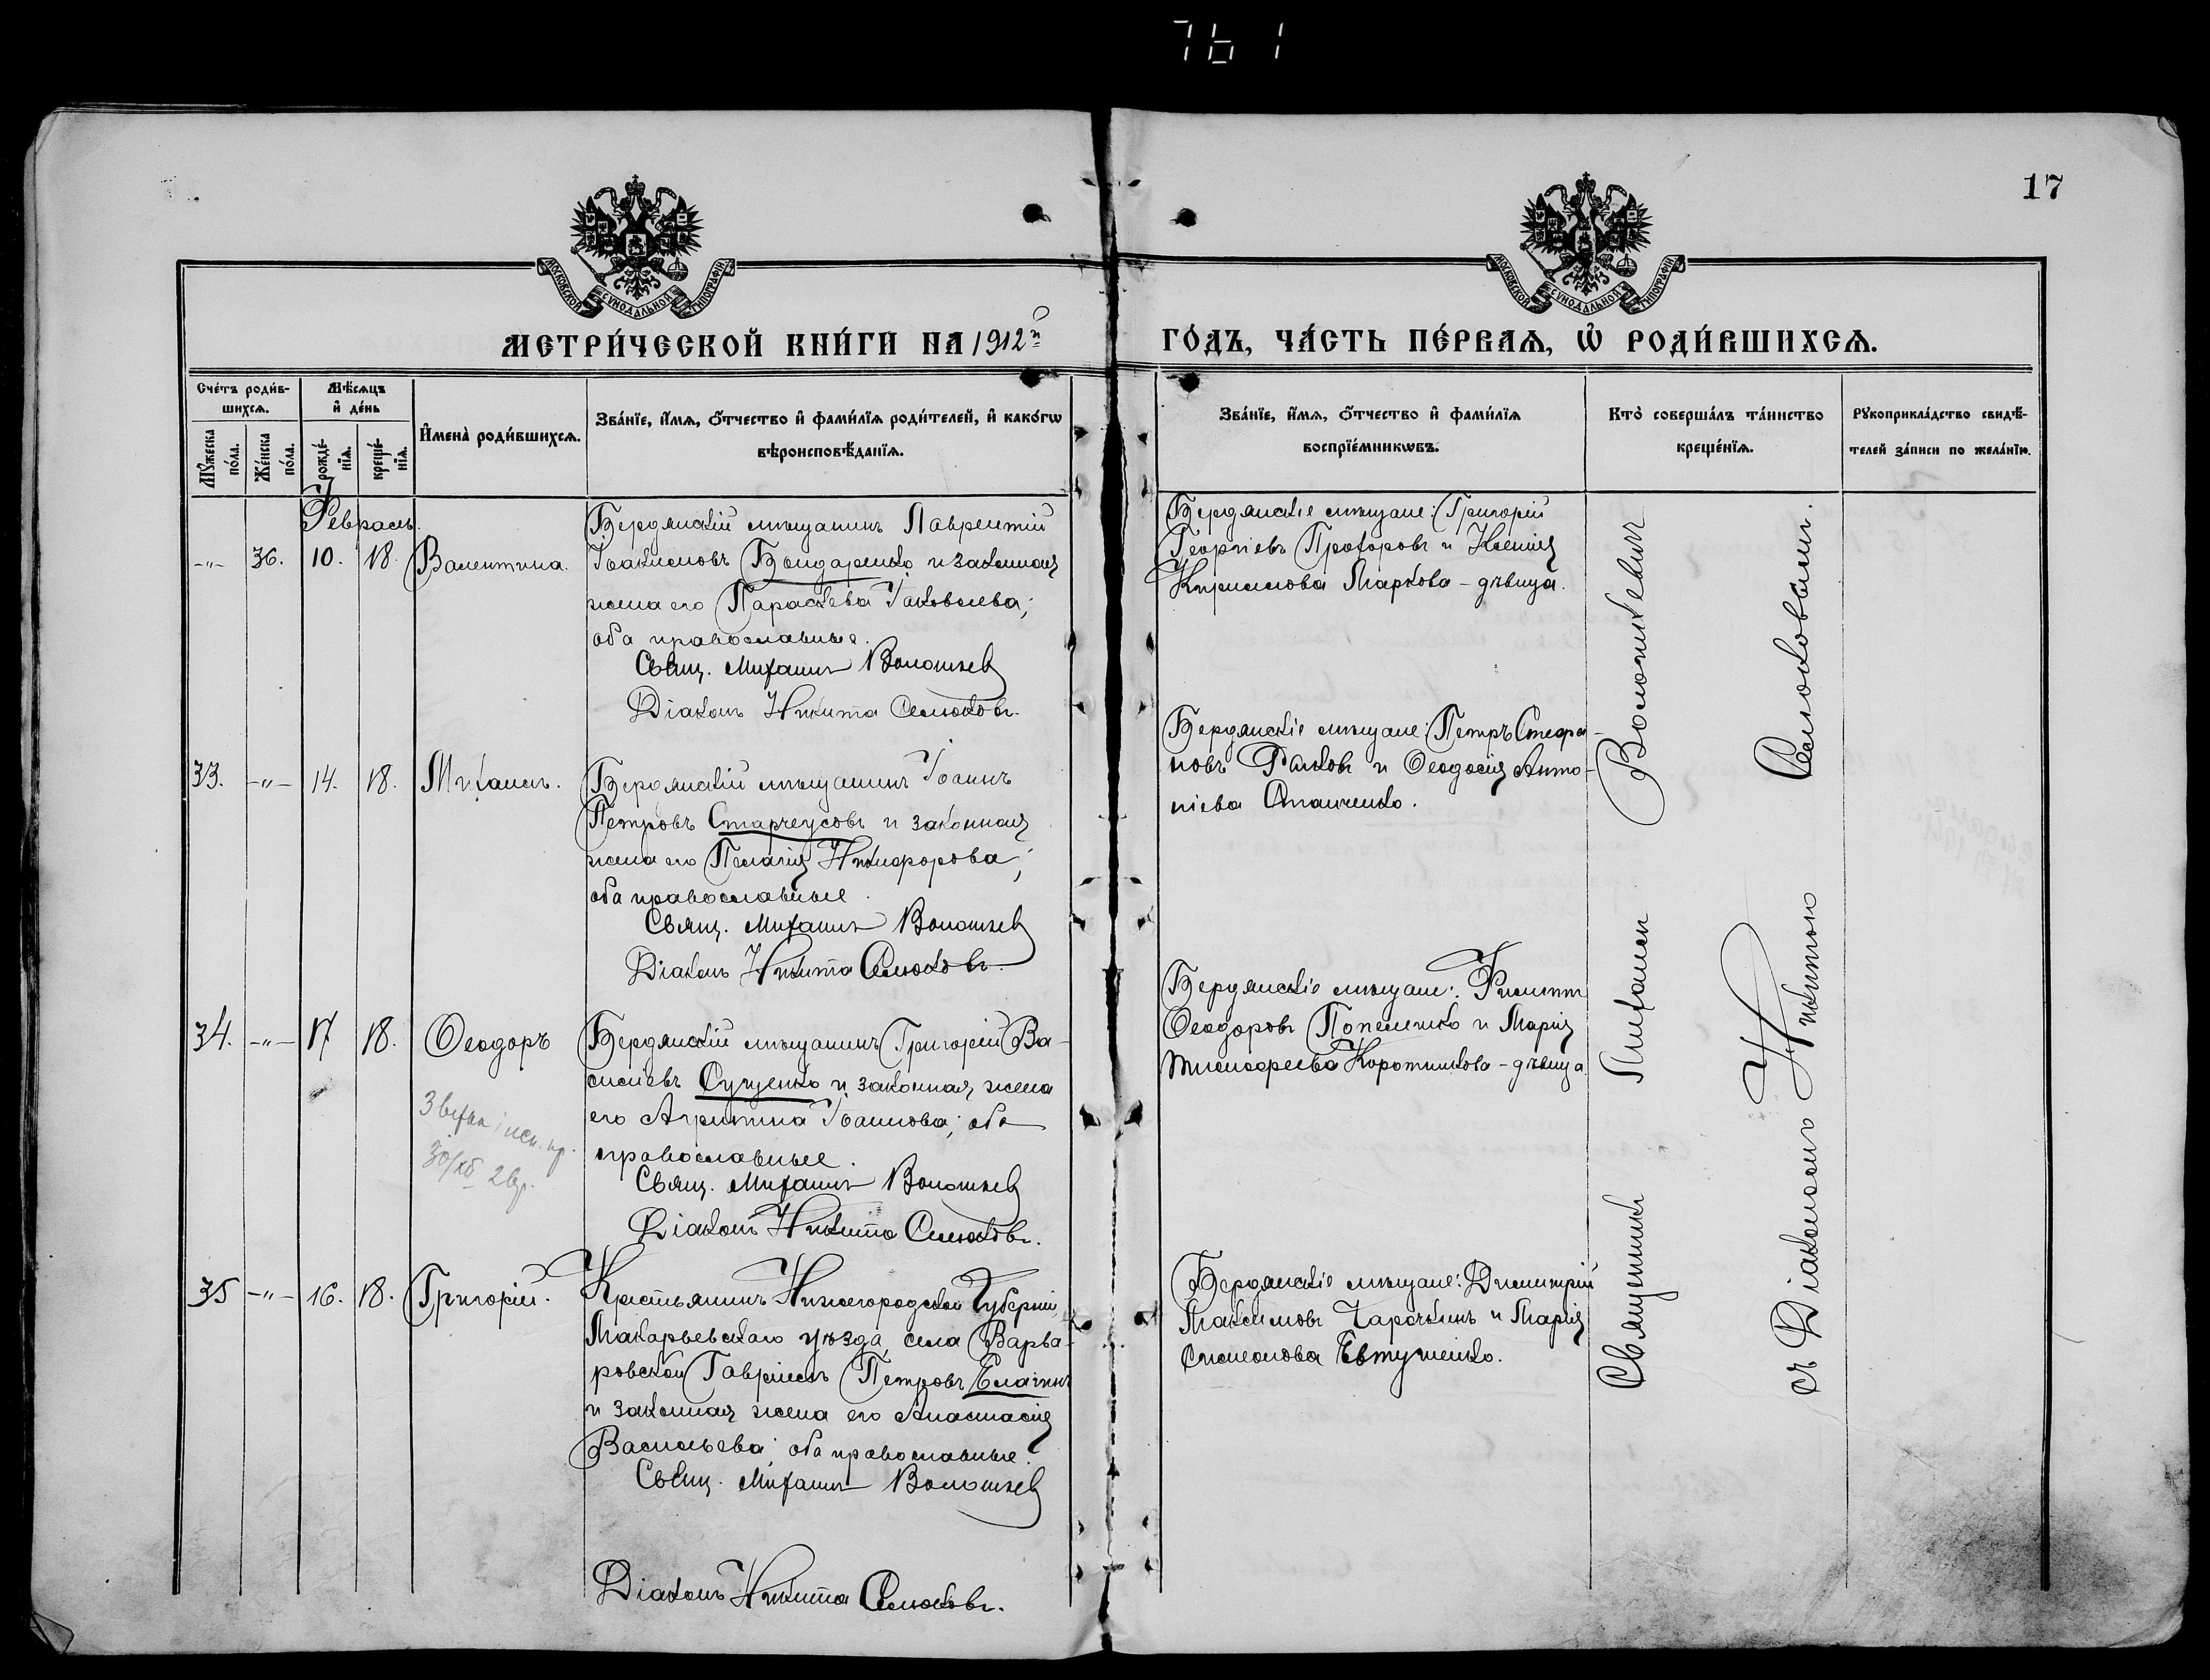 761
17
МОСКОВСКОЙ СѴНОДАЛЬНОЙ ТИПОГРАФІИ
МОСКОВСКОЙ СѴНОДАЛЬНОЙ ТИПОГРАФІИ
МЕТРИ́ЧЕСКОЙ КНИ́ГИ НА 1912й
ГО́ДЪ, ЧА́СТЬ ПЕ́РВАѦ, Ѡ҆ РОДИ́ВШИХСѦ.
Сче́тъ роди́в-
шихсѧ.
Мꙋ́жеска
по́ла.
Же́нска
по́ла.
Мѣ́сѧцъ
и҆ де́нь
рожде́-
нїѧ.
креще́-
нїѧ.
И҆мена̀ роди́вшихсѧ.
Зва́нїе, и҆́мѧ, ѻ҆́тчество и҆ фами́лїѧ роди́телей, и҆ како́гѡ
вѣроисповѣ́данїѧ.
Зва́нїе, и҆́мѧ, ѻ҆́тчество и҆ фами́лїѧ
воспрїе́мникѡвъ.
Кто̀ соверша́лъ та́инство
креще́нїѧ.
Рꙋкоприкла́дство свидѣ́-
телей за́писи по жела́нїю.
Февраль.
-"- 36. 10. 18. Валентина.
Бердянскій мѣщанинъ Лаврентій
Іоакимовъ Бондаренко и законная
жена его Параскева Іаковлева;
оба православные.
Свящ. Михаилъ Волошкев
Діаконъ Никита Селюковъ.
Бердянскіе мѣщане: Григорій
Георгіевъ Прохоровъ и Ксенія
Кириллова Маркова – дѣвица.
33. -"- 14. 18. Михаилъ.
Бердянскій мѣщанинъ Іоаннъ
Петровъ Старчеусовъ и законная
жена его Пелагія Никифорова;
оба православные.
Свящ. Михаилъ Волошкев
Діаконъ Никита Селюковъ.
Бердянскіе мѣщане: Петръ Стефа-
новъ и Ѳеодосія Анто-
ніева
34. -"- 17 18. Ѳеодоръ
Бердянскій мѣщанинъ Григорій Ва-
силіевъ Сущенко и законная жена
его Агриппина Іоаннова; оба
православные.
Свящ. Михаилъ Волошкев
Діаконъ Никита Селюковъ.
Бердянскіе мѣщане: Филиппъ
Ѳеодоровъ Попеленко и Марія
Тимоѳеева Коротникова – дѣвица
30/XII
35 -"- 16. 18. Григорій.
Крестьянинъ Нижегородской Губерніи,
Макарьевскаго уѣзда, села Варва-
ровской Гавріилъ Петровъ Елагинъ
и законная жена его Анастасія
Васильева; оба православные.
Свящ. Михаилъ Волошкев
Діаконъ Никита Селюковъ.
Бердянскіе мѣщане: Димитрій
Максимовъ Чарочкинъ и Марія
Симеонова Евтушенко.
Священникъ Михаилъ Волошкевичъ
съ Діакономъ Никитою Селюковымъ.